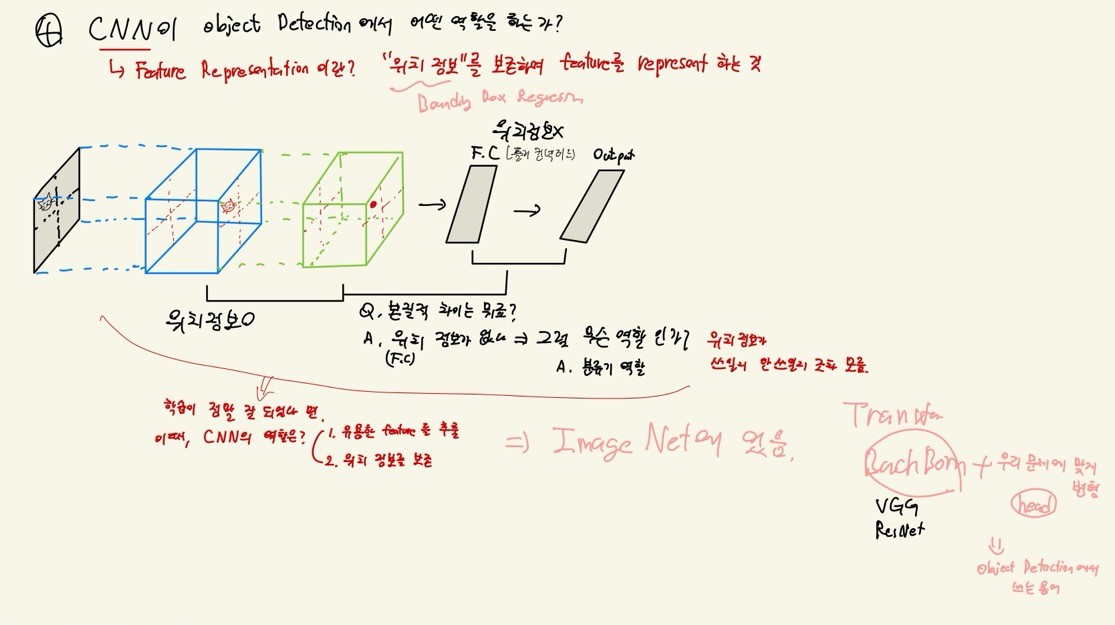 ④ CNN이 object Detection에서 어떤 역할을 하는가?
↳ Feature Representation이란? "위치 정보"를 보존하여 feature를 represent 하는 것
Bounding Box Regression
위치정보X
F.C
Output
위치정보O
Q. 본질적 차이는 뭐죠?
A. 위치 정보가 없다 ⇒ 그럼 무슨 역할 인가?
(F.C)
A. 분류기 역할
위치 정보가
쓰일지 안쓰일지 모름.
학습이 정말 잘 되었다 면,
이때, CNN의 역할은?
1. 유용한 feature를 추출
2. 위치 정보를 보존
⇒ ImageNet에 있음.
Transfer
BackBorn + 우리 문제에 맞게
변형
head
VGG
ResNet
⇓
Object Detection에서
쓰는 용어